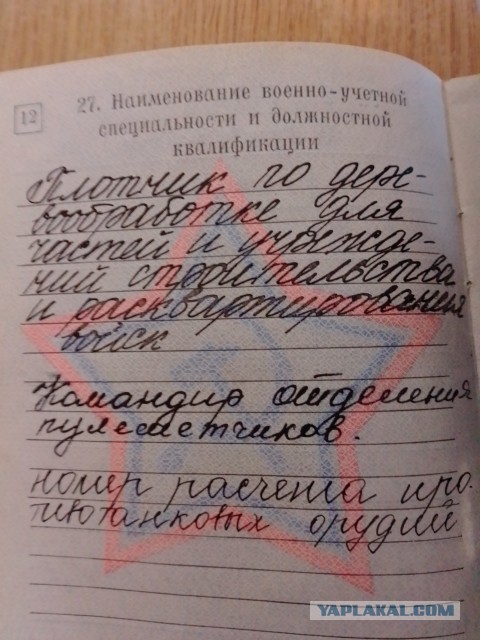 12
27. Наименование военно-учетной
специальности и должностной
квалификации
Плотчик по дере-
вообработке для
частей и учрежде-
ний строительства
и расквартирования
войск
Командир отделения
пулеметчиков.
номер расчета про-
тивотанковых орудий
YAPLAKAL.COM